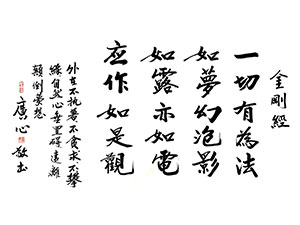 金剛經
一切有為法
如夢幻泡影
如露亦如電
應作如是觀
外在不執著不貪求不攀
緣自然心無罣礙遠離
顛倒夢想
廣心敬書